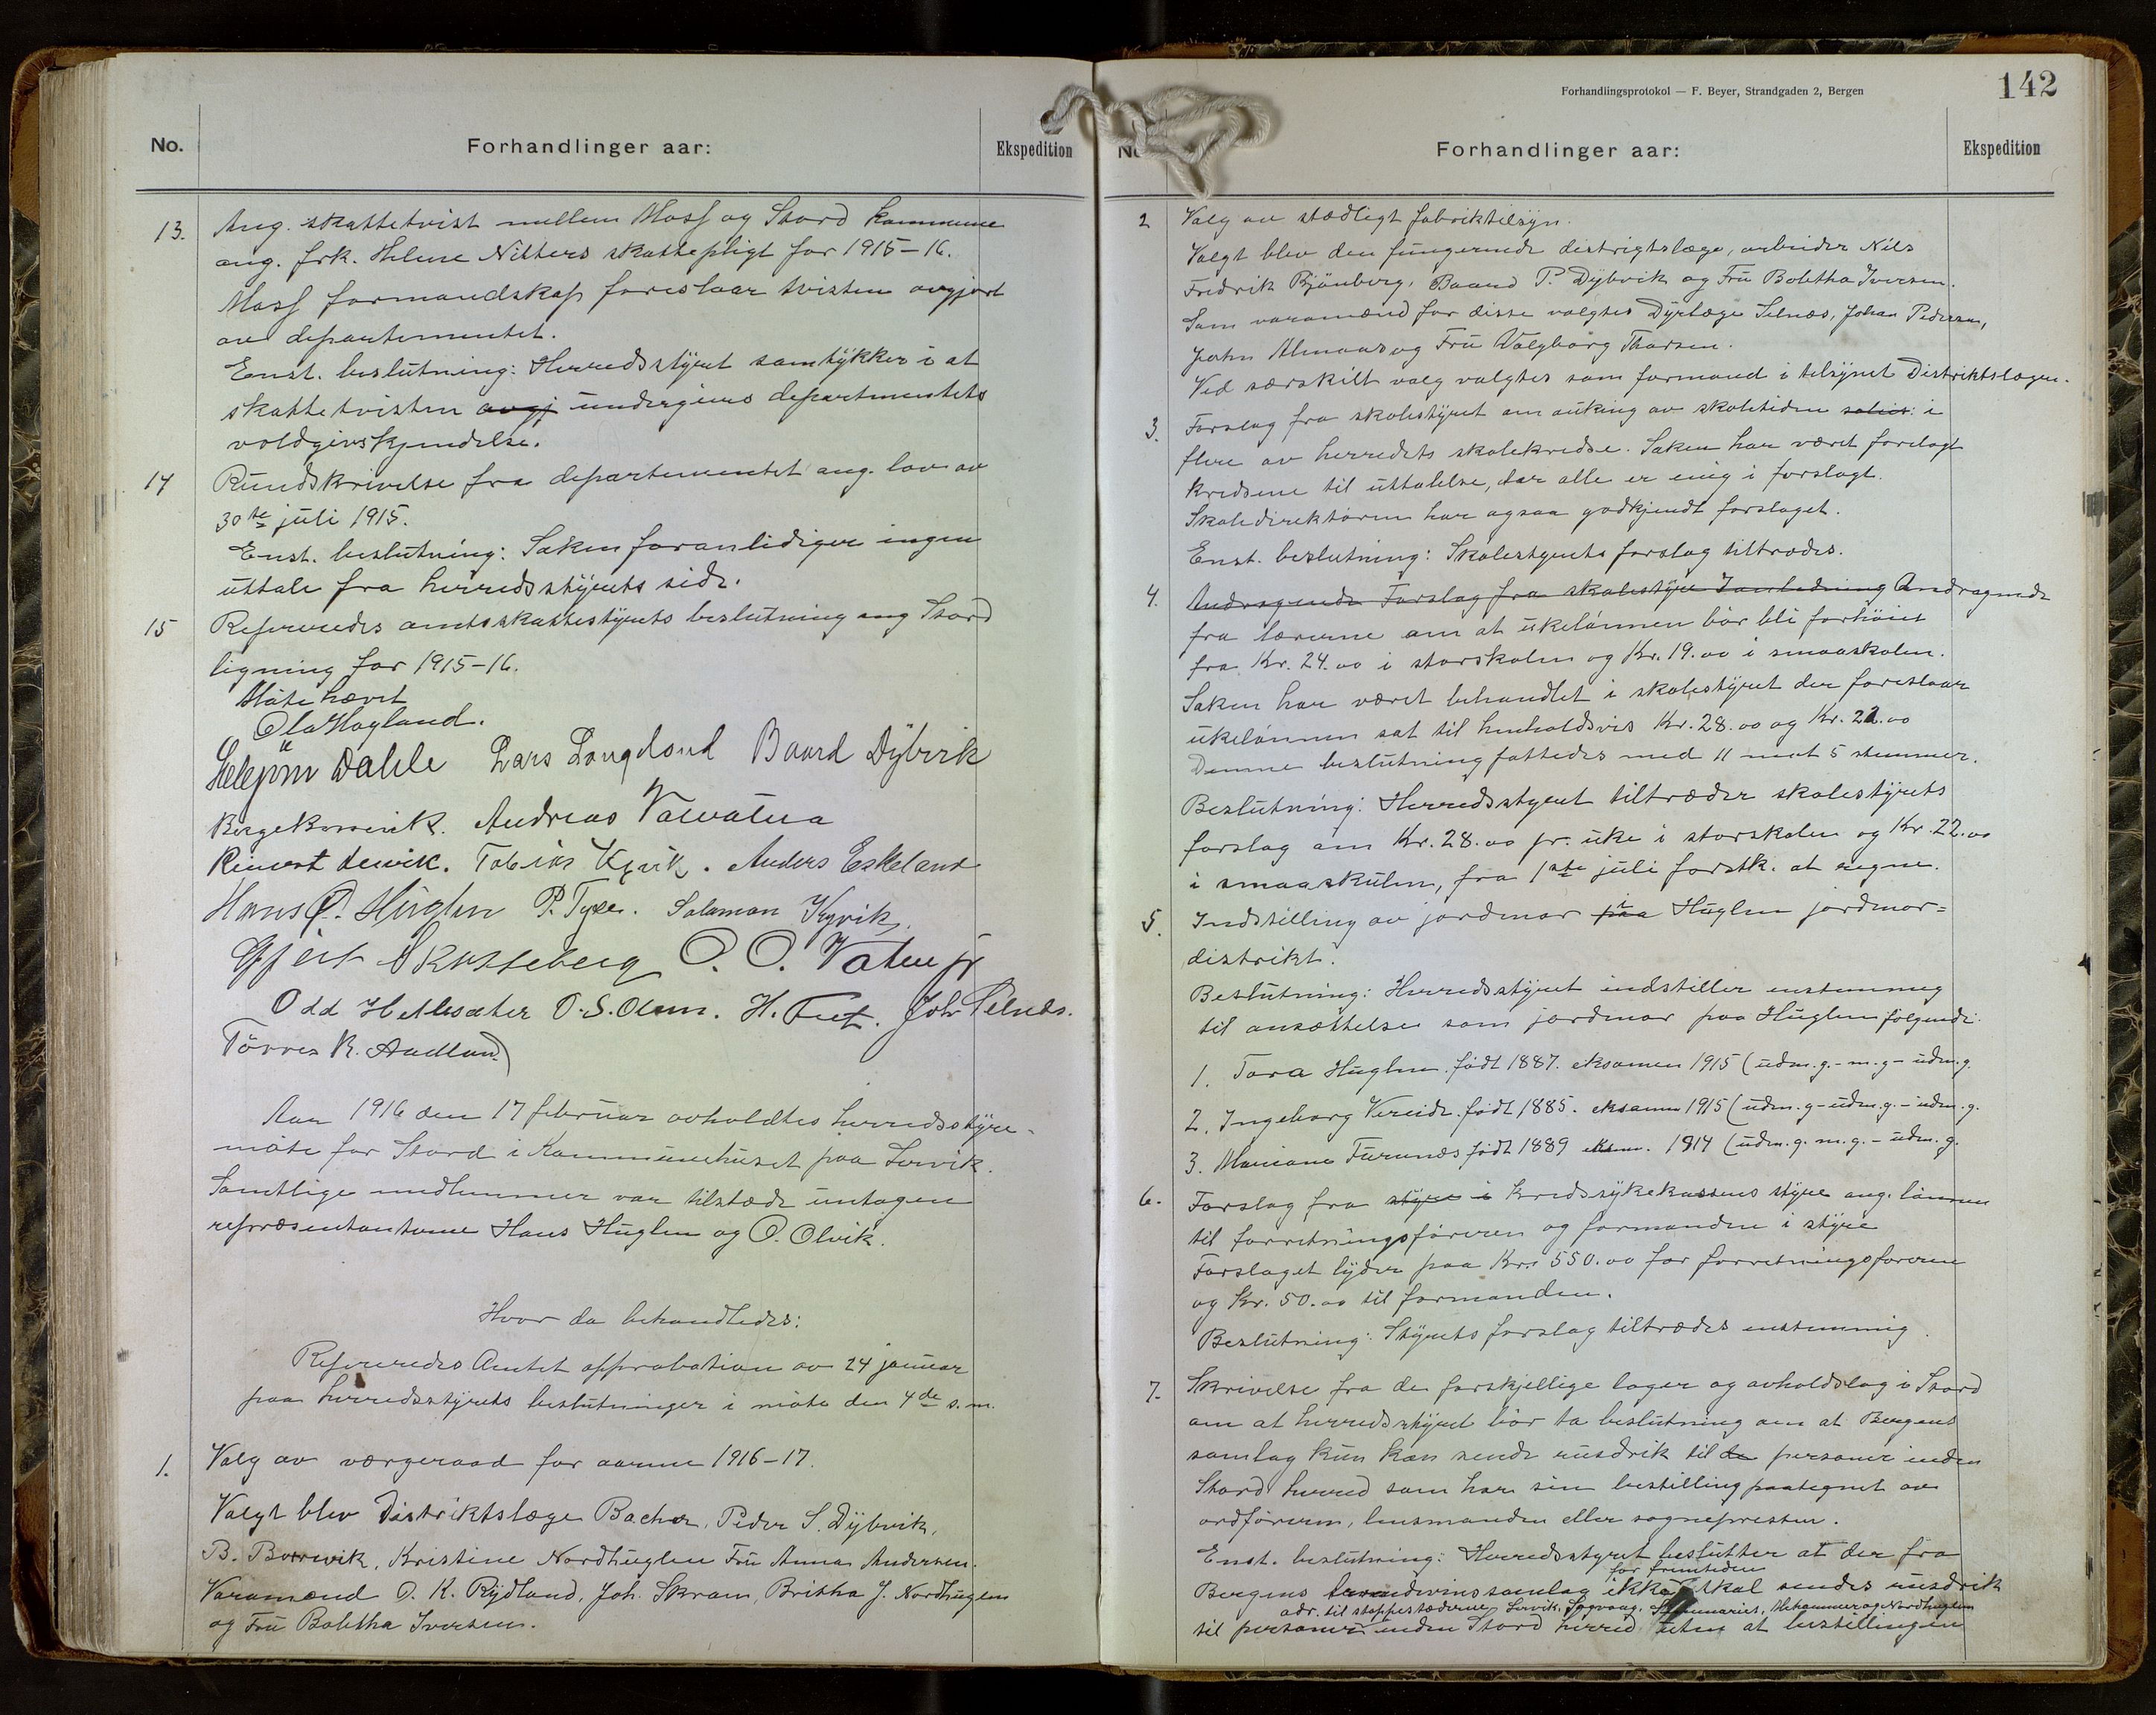 No.
Forhandlinger aar:
Ekspedition
13. Ang. skattetvist mellem Moss og Stord kommune
ang. frk. Helene Nilters skattepligt for 1915-16.
Moss formandskap foreslaar tvisten avgjort
av departementet.
Enst. beslutning: Herredsstyret samtykker i at
skattetvisten avgj undergives departementets
voldgivskjendelse.
14 Rundskrivelse fra departementet ang. lov av
30te juli 1915.
Enst. beslutning: Saken foranlediger ingen
uttale fra herredsstyrets side.
15 Refereredes amtsskattestyrets beslutning ang Stord
ligning for 1915-16.
Møte hævet
Ola Høyland.
Dahle Lars Langeland Baard Dybvik
Andreas Valvatna
Reinert Lervik. Tobias Kyvik. Anders Eskeland
Hans O. Huglen P. Tyse. Salamon Kyvik.
Gjert Skatteberg O. O. Vatne jr
Odd Hetlesæter O. S. Olsen. H. Joh Selnes.
Tørres K. Aadland
Aar 1916 den 17 februar avholdtes herredsstyre-
møte for Stord i Kommunehuset paa Lervik.
Samtlige medlemmer var tilstæde untagen
repræsentanterne Hans Huglen og O. Olvik.
Hvor da behandledes:
Refereredes Amtet approbation av 24 januar
paa herredsstyrets beslutninger i møte den 4de s.m.
1. Valg av værgeraad for aarene 1916-17.
Valgt blev Distriktslæge Bacher, Peder S. Dybvik,
B. Borrevik, Kristine Nordhuglen Fru Anna Andersen.
Varamænd O. K. Rydland, Joh. Skram, Britha J. Nordhuglen
og Fru Boletha Iversen.
Forhandlingsprotokol — F. Beyer, Strandgaden 2, Bergen
142
No
Forhandlinger aar:
Ekspedition
2 Valg av stædligt fabriktilsyn.
Valgt blev den fungerende distrigtslæge, arbeider Nils
Fredrik Bjønberg, Baard P. Dybvik og Fru Boletha Iversen.
Som varamænd for disse valgtes Dyrlæge Selnæs, Johan Pedersen,
John Almaas og Fru Valgborg Thorsen.
Ved særskilt valg valgtes som formand i tilsynet Distriktslægen.
3. Forslag fra skolestyret om øuking av skoletiden i
flere av herredets skolekredse. Saken har været forelagt
kredsene til uttalelse, dar alle er enig i forslagt.
Skoledirektøren har ogsaa godkjendt forslaget.
Enst. beslutning: Skolestyrets forslag tiltrædes.
4. Andragende Forslag fra skolestyre I anledning Andragende
fra lærerne om at ukelønnen bør bli forhøiet
fra Kr. 24.00 i storskolen og Kr. 19.00 i smaaskolen.
Saken har været behandlet i skolestyret der foreslaar
ukelønnen sat til henholdsvis Kr. 28.00 og Kr. 22.00
Denne beslutning fattedes med 11 mot 5 stemmer.
Beslutning: Herredsstyret tiltræder skolestyrets
forslag om Kr. 28.00 pr. uke i storskolen og Kr. 22.00
i smaaskulen, fra 1ste juli førstk. at regne.
5. Indstilling av jordmor paa i Huglen jordmor=
distrikt.
Beslutning: Herredsstyret indstiller enstemmig
til ansættelse som jordmor paa Huglen følgende:
1. Tora Huglen. født 1887. eksamen 1915 (udm.g.-m.g-udm.g.
2. Ingeborg Vereide. født 1885. eksamen 1915 (udm.g-udm.g.-udm.g.
3. Mariane Furunæs født 1889 eksm. 1914 (udm.g. m.g.-udm.g.
6. Forslag fra styre i Kredssykekassens styre ang. lønnen
til forretningsføreren og formanden i styre
Forslaget lyder paa Kr. 550.00 for forretningsføreren
og Kr. 50.00 til formanden.
Beslutning: Styrets forslag tiltrædes enstemmig.
7. Skrivelse fra de forskjellige loger og avholdslag i Stord
om at herredsstyret bør ta beslutning om at Bergens
samlag kun kan sende rusdrik til de personer inden
Stord herred som har sin bestilling paategnet av
ordføreren, lensmanden eller sognepresten.
Enst. beslutning: Herredsstyret beslutter at der fra
for fremtiden
Bergens brændevinssamlag ikke skal sendes rusdrik
adr. til stoppestæderne Lervik, Sagvaag, Nordhuglen
til personer inden Stord herred uten at bestillingen